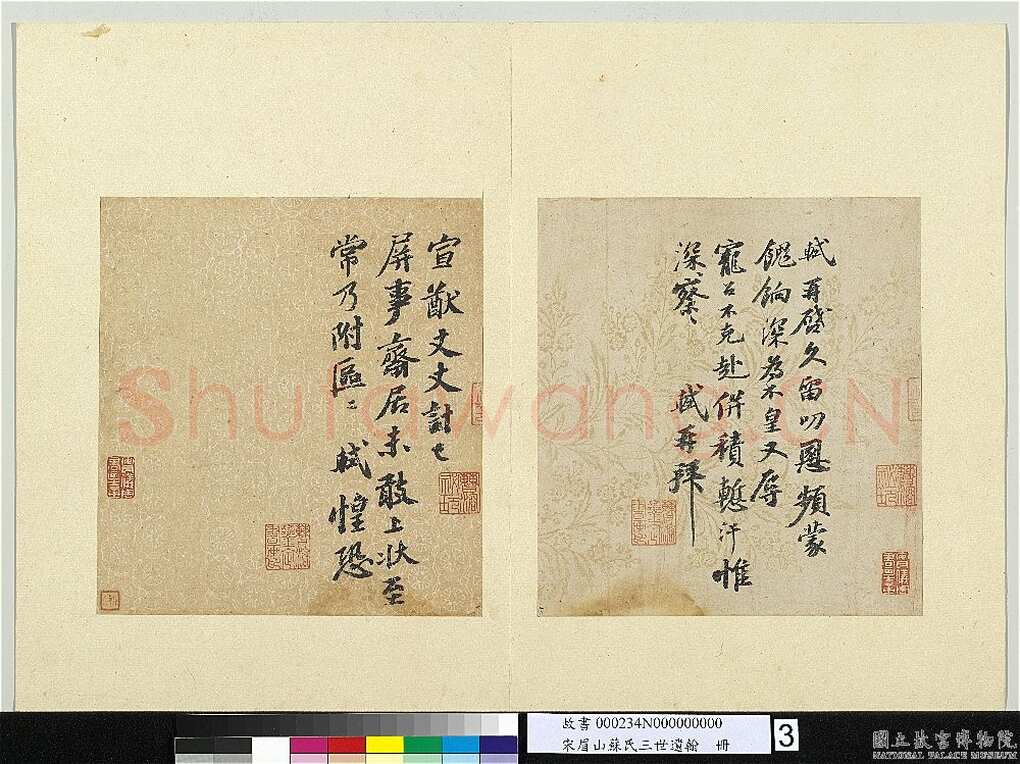 軾再啓久留叨恩頻蒙
餽餉深爲不皇又辱
寵召不克赴併積慙汗惟
深〻察〻 軾再拜
宣猷丈丈計已
屏事齋居未敢上狀至
常乃附區〻 軾惶恐
Shufawang.CN
故書 000234N000000000
宋眉山蘇氏三世遺翰 冊
3
國立故宮博物院
NATIONAL PALACE MUSEUM